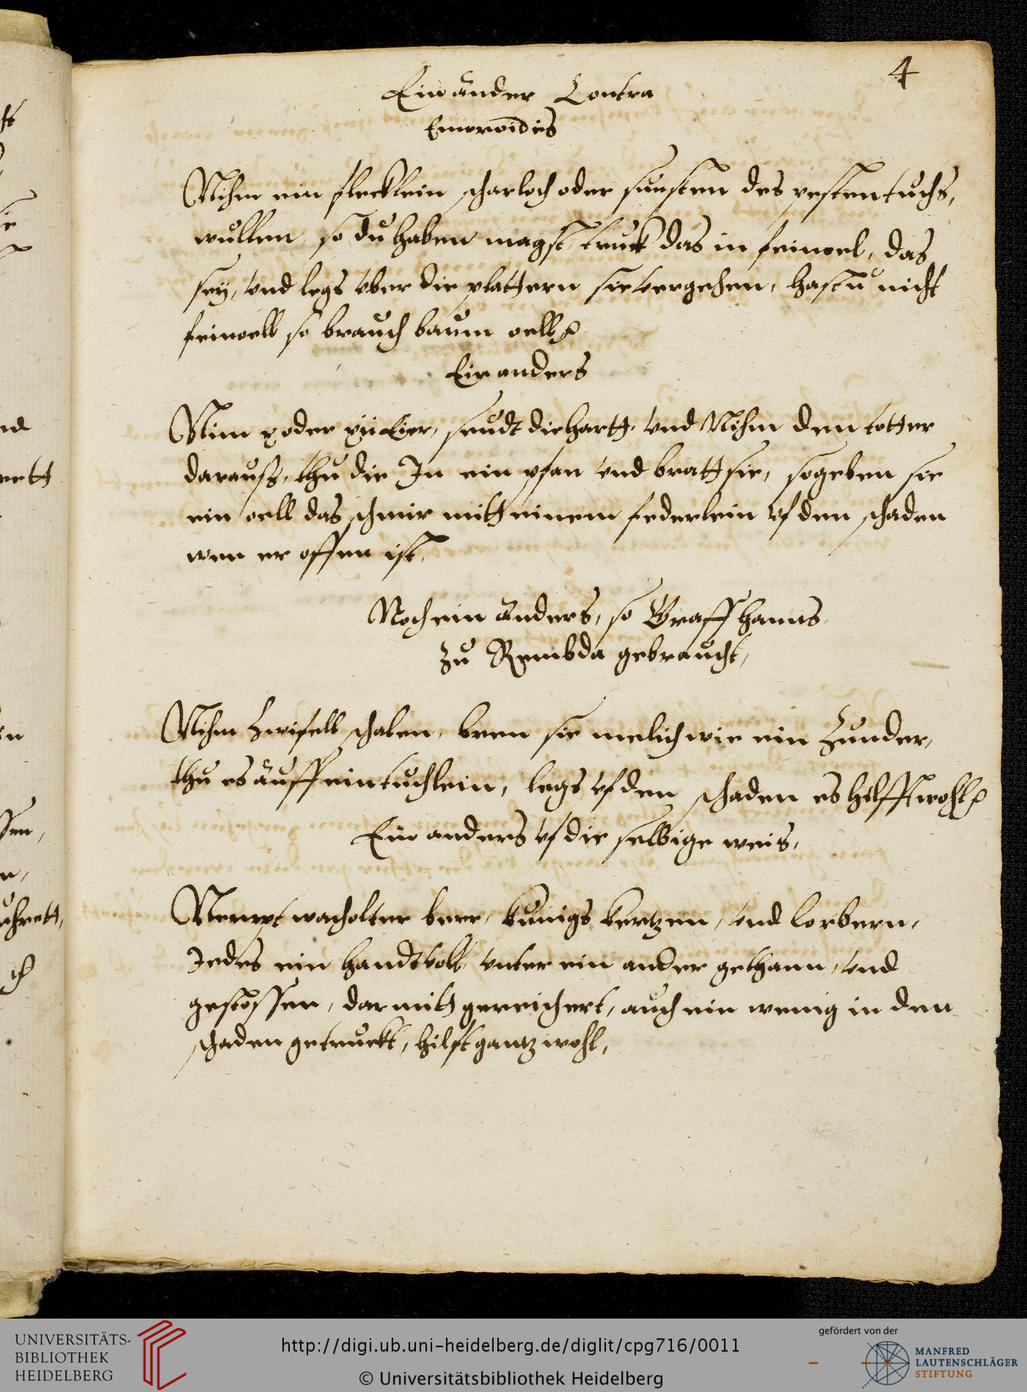 4
Ein ander Contra
Emoroides
Nihm ein flecklein scharloch oder sunsten des pesten tuchs,
wullen so du haben magst, trukh das in leinoel, das
sey, vnd legs vber die plattern sie vergehen, hastu nicht
leinoell so brauch baum oell
Ein anders
Nim x oder xii Eier, seudt die hartt, vnd Nihm den totter
darauß, thu die In ein pfan vnd bratt sie, so geben sie
ein oell das schmir mitt einem federlein vf den schaden
wen er offen ist,
Noch ein anders, so Graff hanns
zu Rembda gebraucht,
Nihm Zwifell schalen, bren sie melich wie ein Zunder,
thu es auff ein tuchlein, legs vf den schaden es hilfft wohl
Ein anders vf die selbige weis,
Nempt wacholter beer, kunigs kertzen, vnd lorbern,
Jedes ein handt voll vnter ein ander gethann, vnd
gestossen, darmitt gereichert, auch ein wenig in den
schaden getruckt, hilft gantz wohl,
UNIVERSITÄTS-
BIBLIOTHEK
HEIDELBERG
http://digi.ub.uni-heidelberg.de/diglit/cpg716/0011
© Universitätsbibliothek Heidelberg
gefördert von der
MANFRED
LAUTENSCHLÄGER
STIFTUNG